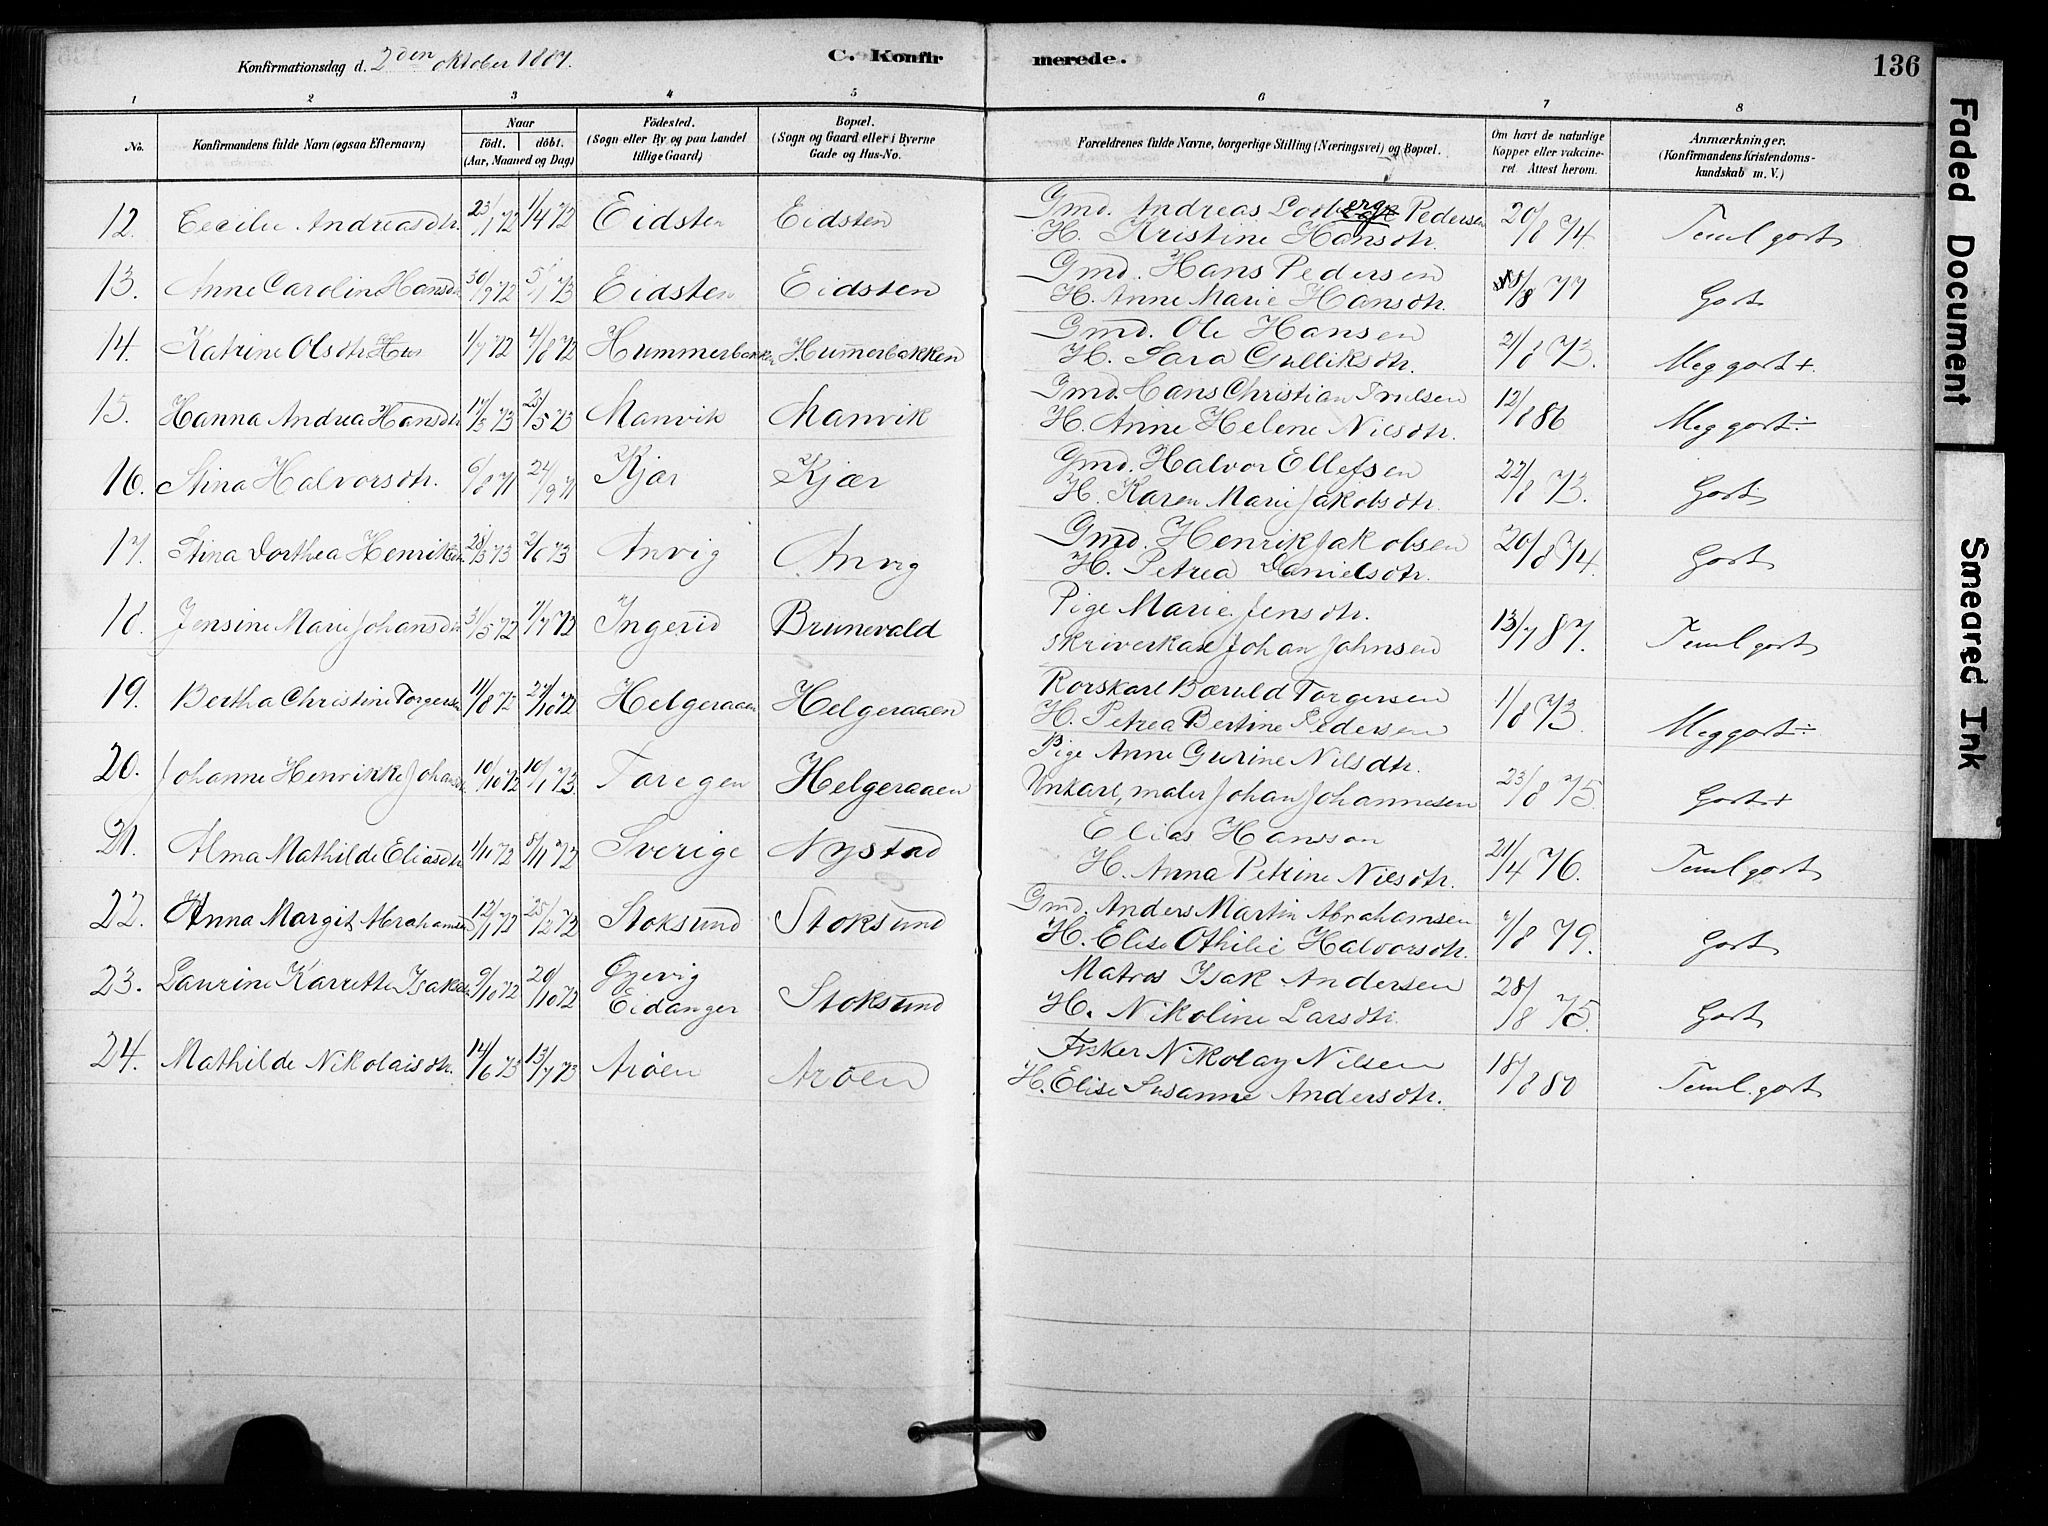 Konfirmationsdag d. 2den oktober 1887.
C. Konfir
merede.
136
1 2 3 4 5 6 7 8
No.
Konfirmandens fulde Navn (ogsaa Efternavn)
Naar
födt. döbt.
(Aar, Maaned og Dag)
Födested.
(Sogn eller By og paa Landet
tillige Gaard)
Bopæl.
(Sogn og Gaard eller i Byerne
Gade og Hus-No.
Forældrenes fulde Navne, borgerlige Stilling (Næringsvei) og Bopæl.
Om havt de naturlige
Kopper eller vakcine-
ret. Attest herom.
Anmærkninger.
(Konfirmandens Kristendoms-
kundskab m. V.)
12. Cecilie Andreasdtr. 23/1 72 1/4 72 Eidsten Eidsten Gmd. Andreas Pedersen 20/8 74 Teml godt
H. Kristine Hansdtr.
13. Anne Caroline Hansdtr 30/9 72 5/1 73 Eidsten Eidsten Gmd. Hans Pedersen /8 77 Godt
H. Anne Marie Hansdtr.
14. Katrine Olsdtr 1/7 72 4/8 72 Hummerbakken Hummerbakken Gmd. Ole Hansen 21/8 73. Meg godt +
H. Sara Gulliksdtr.
15. Hanna Andrea Hansdtr 17/3 73 25/5 73 Manvik Manvik Gmd. Hans Christian Trulsen 12/8 86 Meg godt ÷
H. Anne Helene Nilsdtr.
16. Stina Halvorsdtr. 6/8 71 24/9 71 Kjær Kjær Gmd. Halvor Ellefsen 22/8 73. Godt
H. Karen Marie Jakobsdtr.
17. Stina Dorthea Henriksdtr 28/3 73 2/6 73 Anvig Anvig Gmd. Henrik Jakobsen 20/8 74. Godt
H. Petrea Danielsdtr.
18. Jensine Marie Johansdtr 31/5 72 7/7 72 Ingerid Brunevald Pige Marie Jensdtr. 13/7 87. Teml godt
Skriverkarl Johan Johnsen
19. Bertha Christine Torgersen 11/8 72 27/10 72 Helgeraaen Helgeraaen Rorskarl Torgersen 1/8 73. Meg godt ÷
H. Petrea Bertine Pedersen
20. Johanne Henrikke Johansdtr 10/10 72 10/1 73. Helgeraaen Pige Anne Gurine Nilsdtr. 23/8 75. Godt +
Unkarl, maler Johan Johannesen
21. Alma Mathilde Eliasdtr 1/11 72 8/11 72 Sverige Nystad Elias Hansson 21/4 76. Teml godt
H. Anna Petrine Nilsdtr.
22. Anna Margit Abrahamsen 12/1 72 25/2 72 Stoksund Stoksund Gmd. Anders Martin Abrahamsen /8 79. Godt
H. Elise Othilie Halvorsdtr.
23. Laurine Karrette Isaksdtr 9/10 72 20/10 72 Ørevig Stoksund Matros Isak Andersen 28/8 75. Godt
Eidanger H. Nikoline Larsdtr.
24. Mathilde Nikolaisdtr. 14/6 73 13/7 73 Arøen Arøen Fisker Nikolay Nilsen 18/8 80 Teml. godt
H. Elise Susanne Andersdtr.
Faded Document
Smeared Ink